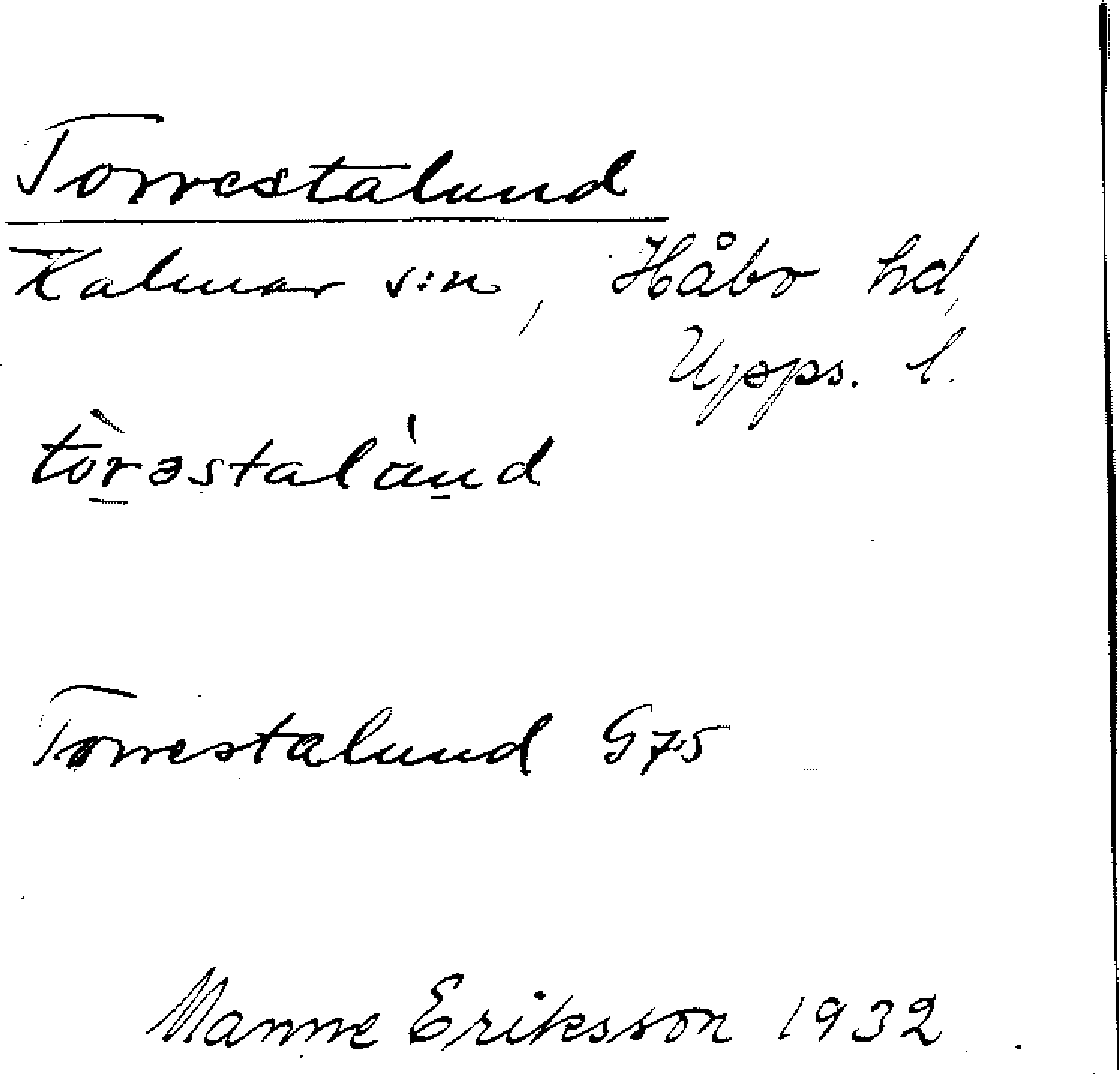 Torrestalund
Kalmar s:n, Håbo hd,
Upps. l.
tòr̲əstalu̲̇nd
Torrestalund G75
Manne Eriksson 1932